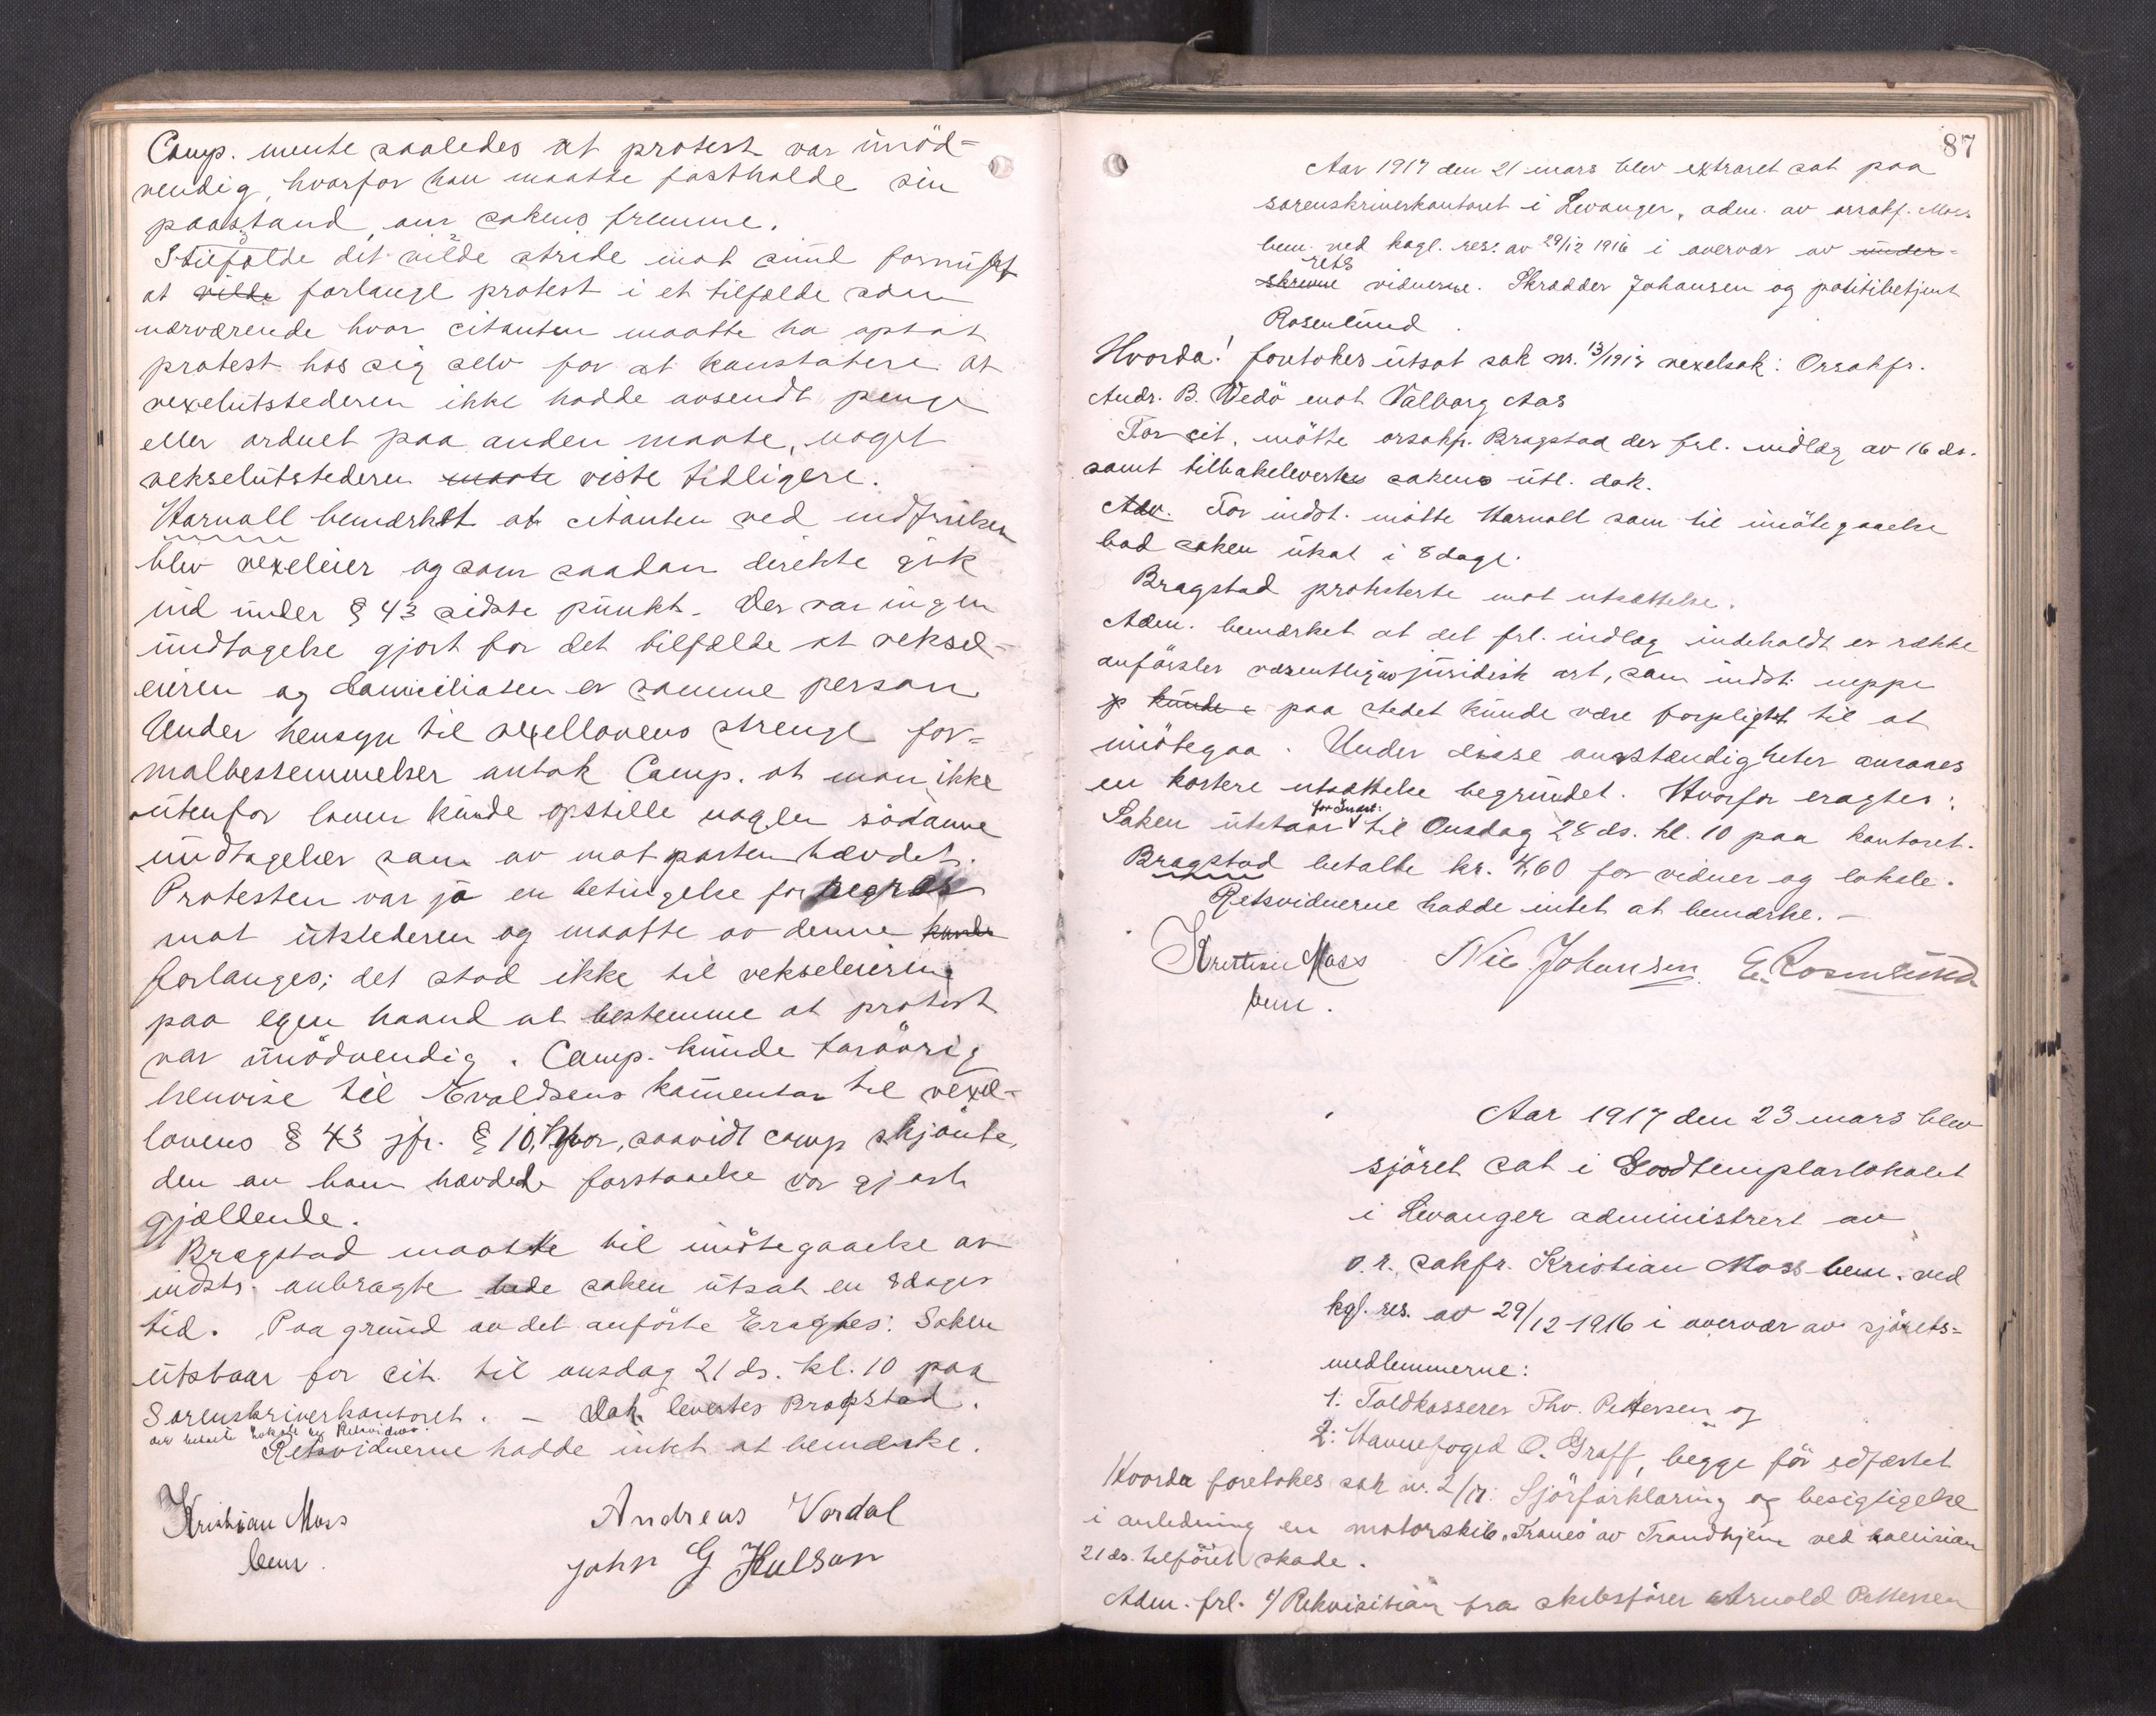 Comp. mente saaledes at protest var unöd-
vendig, hvorfor han maatte fastholde sin
paastand om sakens fremme.
I tilfælde det vilde stride mot sund fornuft
at vilde forlange protest i et tilfælde som
nærværende hvor citanten maatte ha optat
protest hos sig selv for at konstatere at
vexelutstederen ikke hadde avsendt penge
eller ordnet paa anden maate, noget
vekselutstederen maate viste tidligere.
Harvall bemærket at citanten ved indfrielsen
blev vexeleier og som saadan direkte gik
ind under § 43 sidste punkt. Der var ingen
undtagelse gjort for det tilfælde at veksel-
eieren og domiciliaten er samme person
Under hensyn til vexellovens strenge for-
malbestemmelser antok Comp. at man ikke
utenfor loven kunde opstille nogen sådanne
undtagelser som av motparten hævdet.
Protesten var jo en betingelse for regres
mot utstederen og maatte av denne kunde
forlanges; det stod ikke til vekseleieren
paa egen haand at bestemme at protest
var unödvendig. Comp. kunde forövrig
henvise til Evaldsens komentar til vexel-
lovens § 43 jfr. § 10, hvor, saavidt comp skjönte,
den av ham hævdede forstaaelse var gjort
gjældende.
Bragstad maatte til imötegaaelse av
indsts. anbragte bede saken utsat en 8 dages
tid. Paa grund av det anförte Eragtes: Saken
utstaar for cit. til onsdag 21 ds. kl. 10 paa
Sorenskriverkontoret. – Dok. levertes Bragstad.
der betalte lokale og Retsvidner.
Retsvidnerne hadde intet at bemerke.
Kristian Moss
bem.
Andreas Vordal
John G Hulsan
87
Aar 1917 den 21 mars blev extraret sat paa
sorenskriverkontoret i Levanger, adm. av orsakf. Moss
bem. ved kogl. res. av 29/12 1916 i overvær av under-
skrevne rets vidnerne. Skrædder Johansen og politibetjent
Rosenlund.
Hvorda! foretokes utsat sak nr. 13/1917 vexelsak: Orsakfr.
Andr. B. Wedö mot Valborg Aas
For cit. mötte orsakfr. Bragstad der frl. indlæg av 16 ds.
samt tilbakelevertes sakens utl. dok.
Adv. For indst. mötte Harvall som til imötegaaelse
bad saken utsat i 8 dage.
Bragstad protesterte mot utsættelse.
Adm. bemærket at det frl. indlæg indeholdt en række
anförsler væsentlig av juridisk art, som indst. neppe
p kunde e paa stedet kunde være forpligtet til at
imötegaa. Under disse omstændigheter ansaaes
en kortere utsættelse begrundet. Hvorfor eragtes:
Saken utstaar for Indst. til Onsdag 28 ds. kl. 10 paa kontoret.
Bragstad betalte kr. 4,60 for vidner og lokale.
Retsvidnerne hadde intet at bemærke. –
Kristian Moss
bem.
Nic Johansen
E. Rosenlund
Aar 1917 den 23 mars blev
sjöret sat i Goodtemplarlokalet
i Levanger administrert av
o.r. sakfr. Kristian Moss bem. ved
kgl. res. av 29/12 1916 i overvær av sjörets-
medlemmerne:
1: Toldkasserer Thv. Pettersen og
2: Havnefoged O. Graff, begge för edfæstet
Hvorda foretokes sak nr. 2/17: Sjöforklaring og besigtigelse
i anledning en motorskib "Tranes" av Trondhjem ved kollision
21 ds. tilföiet skade.
Adm. frl. 1) Rekvisition fra skibsförer Arnold Pettersen